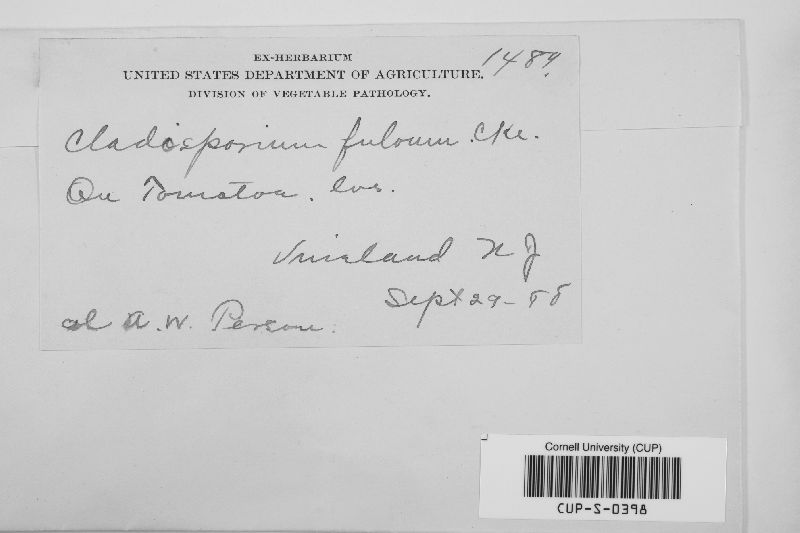 EX-HERBARIUM
UNITED STATES DEPARTMENT OF AGRICULTURE. 1489
DIVISION OF VEGETABLE PATHOLOGY.
Cladosporium fulvum. Cke.
On Tomatoa. lvs.
Vineland N J
Sept 29-88
col A. W. Person.
Cornell University (CUP)
CUP-S-0398